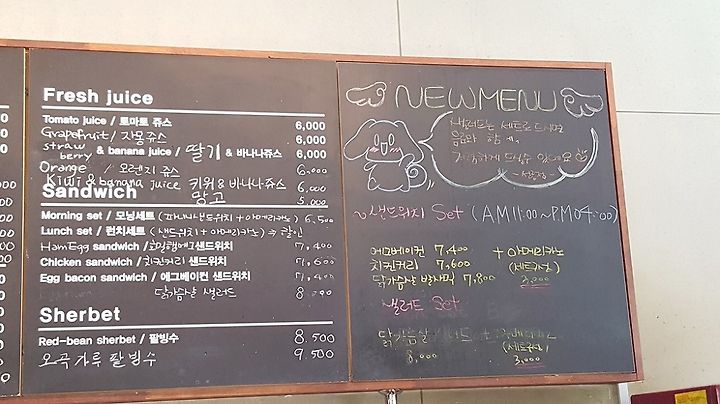 Fresh juice
Tomato juice / 토마토 쥬스 6,000
Grapefruit / 자몽쥬스 6,000
straw berry & banana juice / 딸기 & 바나나쥬스 6,000
Orange / 오렌지 쥬스 6,000
Kiwi & banana juice 키위 & 바나나쥬스 6,000
망고 5,000
Sandwich
Morning set / 모닝세트 (파니니샌드위치 + 아메리카노) 6,500
Lunch set / 런치세트 (샌드위치 + 아메리카노) ⇒ 할인
Ham Egg sandwich / 호밀햄에그샌드위치 7,400
Chicken sandwich / 치킨커리 샌드위치 7,600
Egg bacon sandwich / 에그베이컨 샌드위치 7,400
닭가슴살 샐러드
Sherbet
Red-bean sherbet / 팥빙수 8,500
오곡가루 팥빙수 9,500
NEW MENU
샐러드는 세트로 드시면
음료와 함께
샌드위치 Set (AM 11:00 ~ PM 04:00)
에그베이컨 7,400 + 아메리카노
치킨커리 7,600 (세트가능)
닭가슴살 7,800 3,000
샐러드 Set
닭가슴살
8,000 3,000